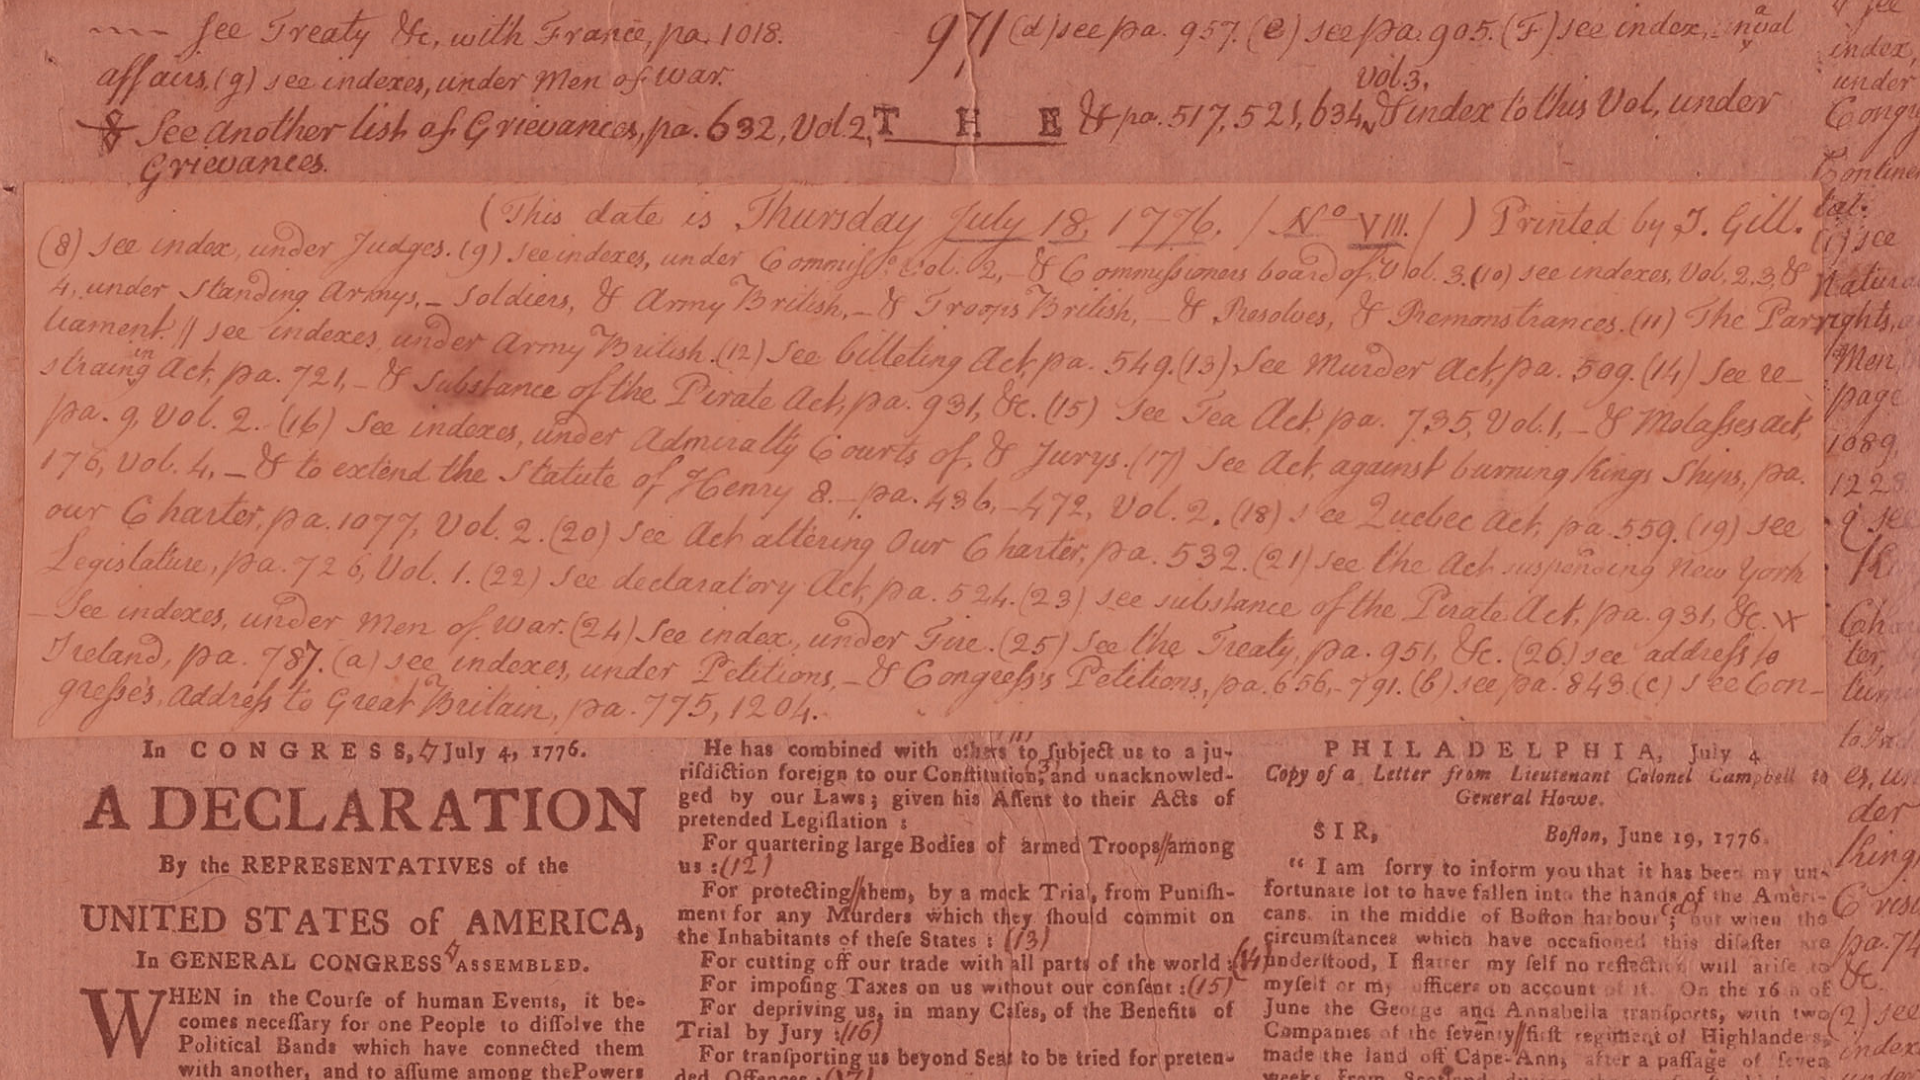 see Treaty &c, with France, pa. 1018.
971 (d) see pa. 957. (e) see pa. 905. (F) see index, naval
affairs, (g) see indexes, under Men of war.
Vol 3,
& See another list of Grievances, pa. 632, Vol. 2,
THE
& pa. 517, 521, 634, & index to this Vol, under
Grievances.
(This date is Thursday July 18, 1776. / No VIII. / ) Printed by J. Gill.
(8) See index, under Judges. (9) see indexes, under Commissrs. Vol. 2, - & Commissioners board of, Vol. 3. (10) see indexes, Vol. 2, 3, &
4, under Standing Armys, - Soldiers, & Army British, - & Troops British, - & Resolves, & Remonstrances. (11) The Par
liament. // see indexes, under Army British. (12) See billeting Act, pa. 549. (13) See Murder Act, pa. 509. (14) See re-
straing in Act, pa. 721, - & Substance of the Pirate Act, pa. 931, &c. (15) See Tea Act, pa. 735, Vol. 1, - & Molasses act,
pa. 9, Vol. 2. (16) See indexes, under Admiralty Courts of, & Jurys. (17) See Act, against burning Kings Ships, pa.
176, Vol. 4, - & to extend the Statute of Henry 8. - pa. 436, - 472, Vol. 2. (18) see Quebec Act, pa. 559. (19) see
our Charter, pa. 1077, Vol. 2. (20) See Act altering Our Charter, pa. 532. (21) see the Act suspending New York
Legislature, pa. 726, Vol. 1. (22) See declaratory Act, pa. 524. (23) see substance of the Pirate Act, pa. 931, &c.
- See indexes, under Men of war. (24) See index, under Fire. (25) See the Treaty, pa. 951, &c. (26) see address to
Ireland, pa. 787. (a) see indexes, under Petitions, - & Congress's Petitions, pa. 656, - 791. (b) see pa. 843. (c) see Con-
gresse's Address to Great Britain, pa. 775, 1204.
In CONGRESS, July 4, 1776.
A DECLARATION
By the REPRESENTATIVES of the
UNITED STATES of AMERICA,
In GENERAL CONGRESS ASSEMBLED.
WHEN in the Course of human Events, it be-
comes necessary for one People to dissolve the
Political Bands which have connected them
with another, and to assume among the Powers
He has combined with others to subject us to a ju-
risdiction foreign to our Constitution, and unacknowled-
ged by our Laws; given his Assent to their Acts of
pretended Legislation :
For quartering large Bodies of armed Troops // among
us : (12)
For protecting // them, by a mock Trial, from Punish-
ment for any Murders which they should commit on
the Inhabitants of these States : (13)
For cutting off our trade with all parts of the world : (14)
For imposing Taxes on us without our consent : (15)
For depriving us, in many Cases, of the Benefits of
Trial by Jury : (16)
For transporting us beyond Seas to be tried for preten-
ded Offences : (17)
PHILADELPHIA, July 4
Copy of a Letter from Lieutenant Colonel Campbell to
General Howe.
SIR, Boston, June 19, 1776.
“ I am sorry to inform you that it has been my un-
fortunate lot to have fallen into the hands of the Ameri-
cans in the middle of Boston harbour (d) ; but when the
circumstances which have occasioned this disaster are
understood, I flatter my self no reflection will arise to
myself or my officers on account of it. On the 16th of
June the George and Annabella transports, with two
Companies of the seventy // first regiment of Highlanders,
made the land off Cape-Ann, after a passage of seven
weeks from Scotland
index,
under
tal.
(1) see
rights,
Men,
page
1089,
1223.
der
pa. 74
&c.
(2) see
index
under